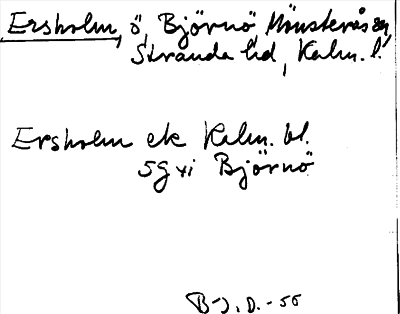 Ersholm, ö, Björnö Mönsterås sn,
Stranda hd, Kalm. l.
Ersholm ek Kalm. bl.
5g xi Björnö
B-J. D. -55